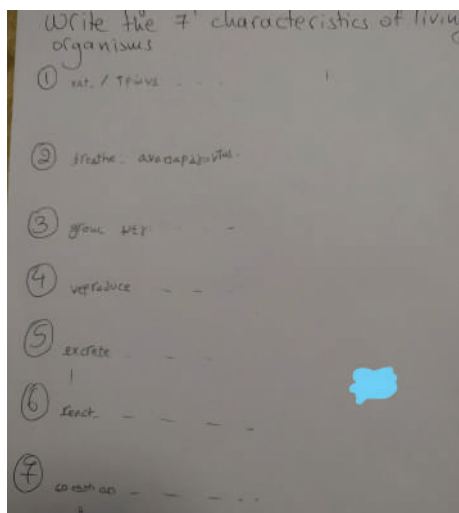 Write the 7 characteristics of living
organisms
① eat. / τρώνε . . .
② breathe.
③ grow μεγ. -
④ reproduce - - -
⑤ excrete - - -
⑥ react - - - -
⑦